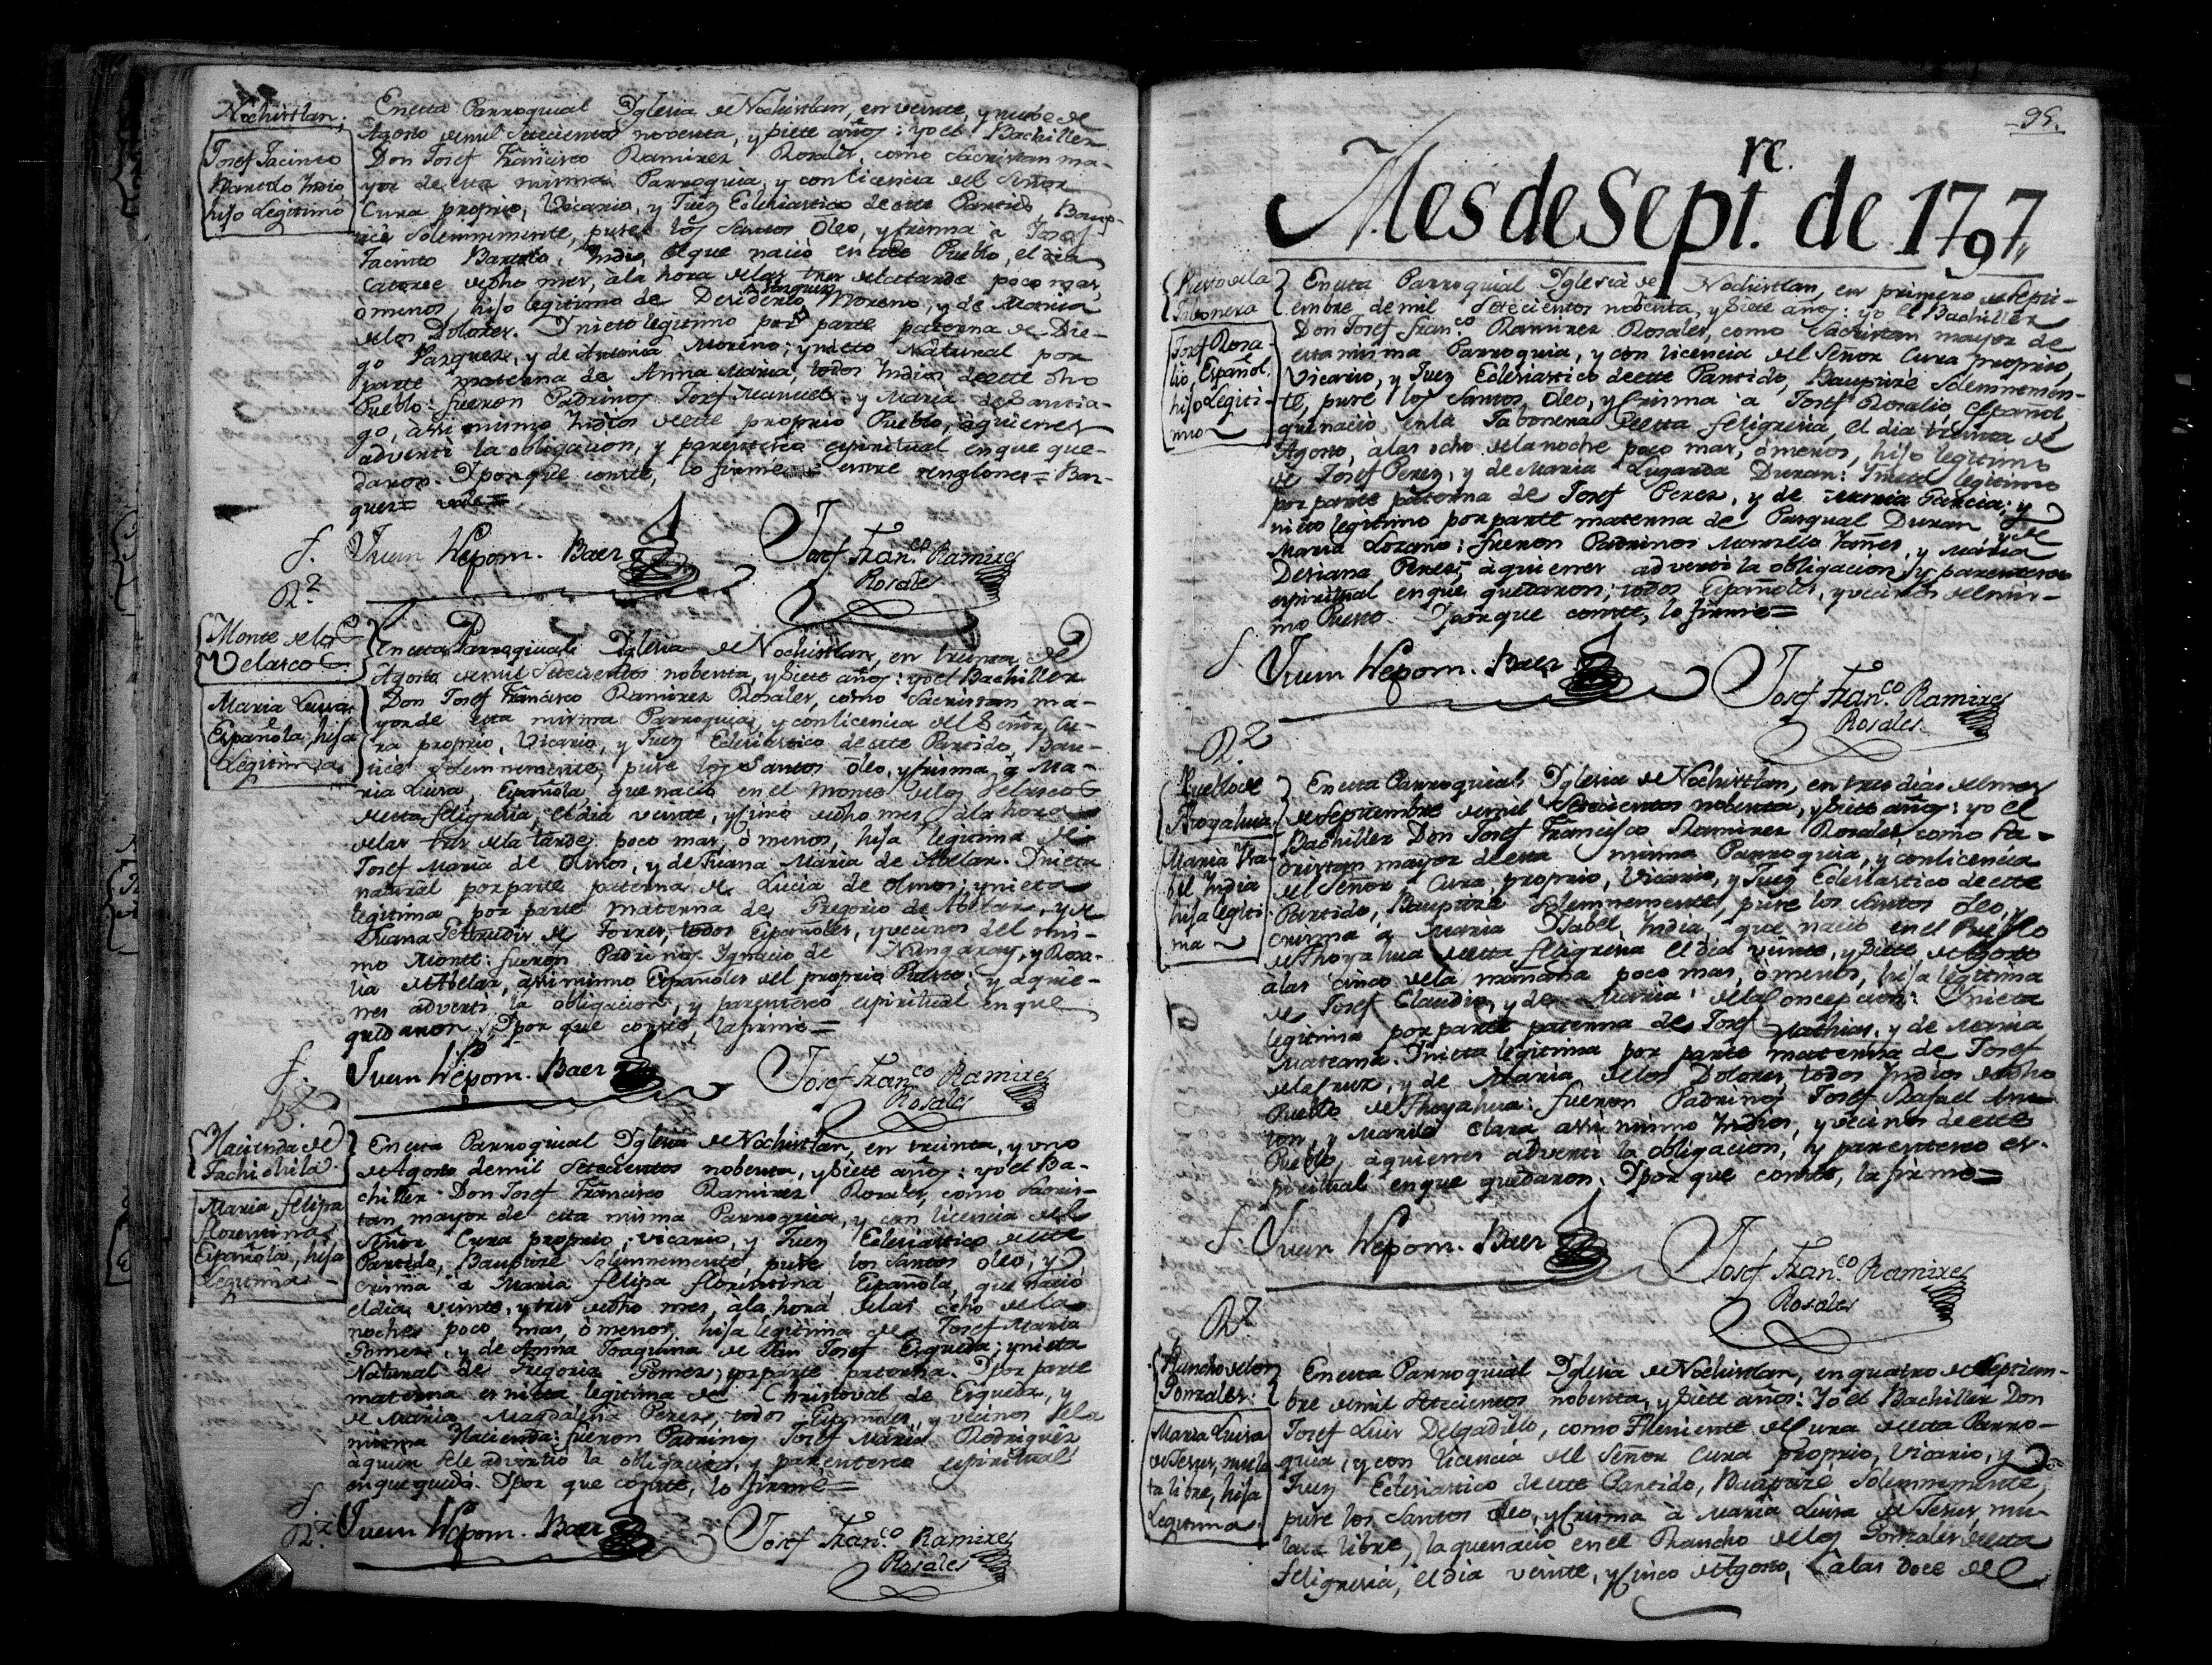 Nochistlan.
Josef Jacinto
Bartolo Yndio
hijo Legitimo
En esta Parroquial Yglesia de Nochistlan, en veinte, y nuebe de
Agosto de mil Setecientos nobenta, y Siete años: yo el Bachiller
Don Josef Francisco Ramirez Rosales, como Sacristan ma-
yor de esta misma Parroquia, y con licencia del Señor
Cura proprio, Vicario, y Juez Eclesiastico de este Partido, Baup-
tice Solemnemente, puse los Santos Oleo, y Crisma a Josef
Jacinto Bartolo, Yndio, el que naciò en este Pueblo, el dia
Catorce de dho mes, à la hora de las tres de la tarde poco mas,
ò menos, hijo legitimo de Desiderio Vasquez Moreno, y de Maria
de los Dolores. Y nieto legitimo por parte paterna de Die-
go Vasquez, y de Antonia Moreno; y nieto Natural por
parte materna de Anna Maria, todos Yndios de este dho
Pueblo: fueron Padrinos Josef Manuel y Maria de Santia-
go, assi mismo Yndios de este proprio Pueblo, à quienes
adverti la obligacion, y parentesco espiritual en que que-
daron. Y porque conste, lo firmè = entre renglones = Bas-
quez = vale =
f. Juan Nepom. Baez
Josef Fran.co Ramirez
Rosales
R.z
Monte de los
Velasco
Maria Luisa
Española, hija
Legitima
En esta Parroquial Yglesia de Nochistlan, en treinta de
Agosto de mil Setecientos nobenta, y Siete años: yo el Bachiller
Don Josef Francisco Ramirez Rosales, como Sacristan ma-
yor de esta misma Parroquia, y con licencia del Señor Cu-
ra proprio, Vicario, y Juez Eclesiastico de este Partido, Bau-
ticè Solemnemente, puse los Santos Oleo, y Crisma à Ma-
ria Luisa, Española, que naciò en el Monte de los Velasco
de esta feligresia, el dia veinte, y Cinco de dho mes, à la hora
de las tres de la tarde, poco mas, ò menos, hija legitima de
Josef Maria de Olmos, y de Juana Maria de Abelar. Y nieta
natural por parte paterna de Lucia de Olmos; y nieta
legitima por parte materna de Gregorio de Abelar, y de
Juana Getrudis de Torres, todos Españoles, y vecinos del mis-
mo Monte: fueron Padrinos Ygnacio de Nungaray, y Rosa-
lia de Abelar, assimismo Españoles del proprio Puesto; y à quie-
nes adverti la obligacion, y parentesco espiritual en que
quedaron. Y por que conste, lo firmè =
f. Juan Nepom. Baez
Josef Fran.co Ramirez
Rosales
Hacienda de
Tachichila.
Maria felipa
florentina
Española, hija
Legitima
En esta Parroquial Yglesia de Nochistlan, en treinta, y uno
de Agosto de mil Setecientos nobenta, y Siete años: yo el Ba-
chiller Don Josef Francisco Ramirez Rosales, como Sacris-
tan mayor de esta misma Parroquia, y con licencia del
Señor Cura proprio, vicario, y Juez Eclesiastico de este
Partido, Bauptizè Solemnemente, puse los Santos Oleo, y
Crisma à Maria felipa florentina Española, que naciò
el dia veinte, y tres de dho mes, à la hora de las Ocho de la
noche, poco mas, ò menos, hija legitima de Josef Maria
Gomez, y de Anna Joaquina de San Josef Esqueda; y nieta
Natural de Gregoria Gomez; por parte paterna. Y por parte
materna es nieta legitima de Christoval de Esqueda, y
de Maria Magdalena Perez, todos Españoles, y vecinos de la
misma Hacienda: fueron Padrinos Josef Maria Rodriguez
a quien se le advirtio la obligacion, y parentesco espiritual
en que quedò. Y por que conste, lo firmè =
f.
R.z Juan Nepom. Baez
Josef Fran.co Ramirez
Rosales
95.
Mes de Sept.re de 1797,,
Puesto de la
Jabonera
Josef Rosa-
lio, Español.
hijo Legiti-
mo
En esta Parroquial Yglesia de Nochistlan, en primero de Septi-
embre de mil Setecientos nobenta, y Siete años: yo el Bachiller
Don Josef Fran.co Ramirez Rosales, como Sacristan mayor de
esta misma Parroquia, y con licencia del Señor Cura proprio,
Vicario, y Juez Eclesiastico de este Partido, Bauptizè Solemnemen-
te, puse los Santos Oleo, y Crisma à Josef Rosalio, español,
que naciò en la Jabonera de esta feligresia, el dia treinta de
Agosto, à las ocho de la noche poco mas, ò menos, hijo legitimo
de Josef Perez, y de Maria Lugarda Duran: Y nieto legitimo
por parte paterna de Josef Perez, y de Maria Garcia; y
nieto legitimo por parte materna de Pasqual Duran y de
Maria Lozano: fueron Padrinos Marcelo Yañes, y Maria
Desiana Perez, à quienes adverti la obligacion, y parentesco
espiritual en que quedaron; todos Españoles, y vecinos del mis-
mo Puesto. Y porque conste, lo firmè =
f. Juan Nepom. Baez
Josef Fran.co Ramirez
Rosales
R.z
Pueblo de
Thoyahua
Maria Ysa-
bel Yndia
hija legiti-
ma
En esta Parroquial Yglesia de Nochistlan, en tres dias del mes
de Septiembre de mil Setecientos nobenta, y Siete años: yo el
Bachiller Don Josef Francisco Ramirez Rosales como Sa-
cristan mayor de esta misma Parroquia, y con licencia
del Señor Cura proprio, Vicario, y Juez Eclesiastico de este
Partido, Bauptizè Solemnemente, puse los Santos Oleo, y
Crisma à Maria Ysabel, Yndia, que nacio en el Pueblo
de Thoyahua de esta feligresia el dia veinte, y Siete de Agosto
à las cinco de la mañana poco mas, ò menos, hija legitima
de Josef Claudio, y de Maria de la Concepcion: Y nieta
legitima por parte paterna de Josef Mathias, y de Maria
Mateana. Y nieta legitima por parte materna de Josef
de la Cruz, y de Maria de los Dolores, todos Yndios de dho
Pueblo de Thoyahua: fueron Padrinos Josef Rafael
y Maria Clara assi mismo Yndios, y vecinos de este
Pueblo, à quienes adverti la obligacion, y parentesco es-
piritual en que quedaron. Y por que conste, lo firmè =
f. Juan Nepom. Baez
Josef Fran.co Ramirez
Rosales
R.z
Rancho de los
Gonzales.
Maria Luisa
de Jesus, mula-
ta libre, hija
Legitima.
En esta Parroquial Yglesia de Nochistlan, en quatro de Septiem-
bre de mil Setecientos nobenta, y Siete años: Yo el Bachiller Don
Josef Luis Delgadillo, como Theniente de Cura de esta Parro-
quia, y con licencia del Señor Cura proprio, Vicario, y
Juez Eclesiastico de este Partido, Bauptizè Solemnemente,
puse los Santos Oleo, y Crisma à Maria Luisa de Jesus, mu-
lata libre, la que naciò en el Rancho de los Gonzales de esta
feligresia, el dia veinte, y Cinco de Agosto, à las doce de